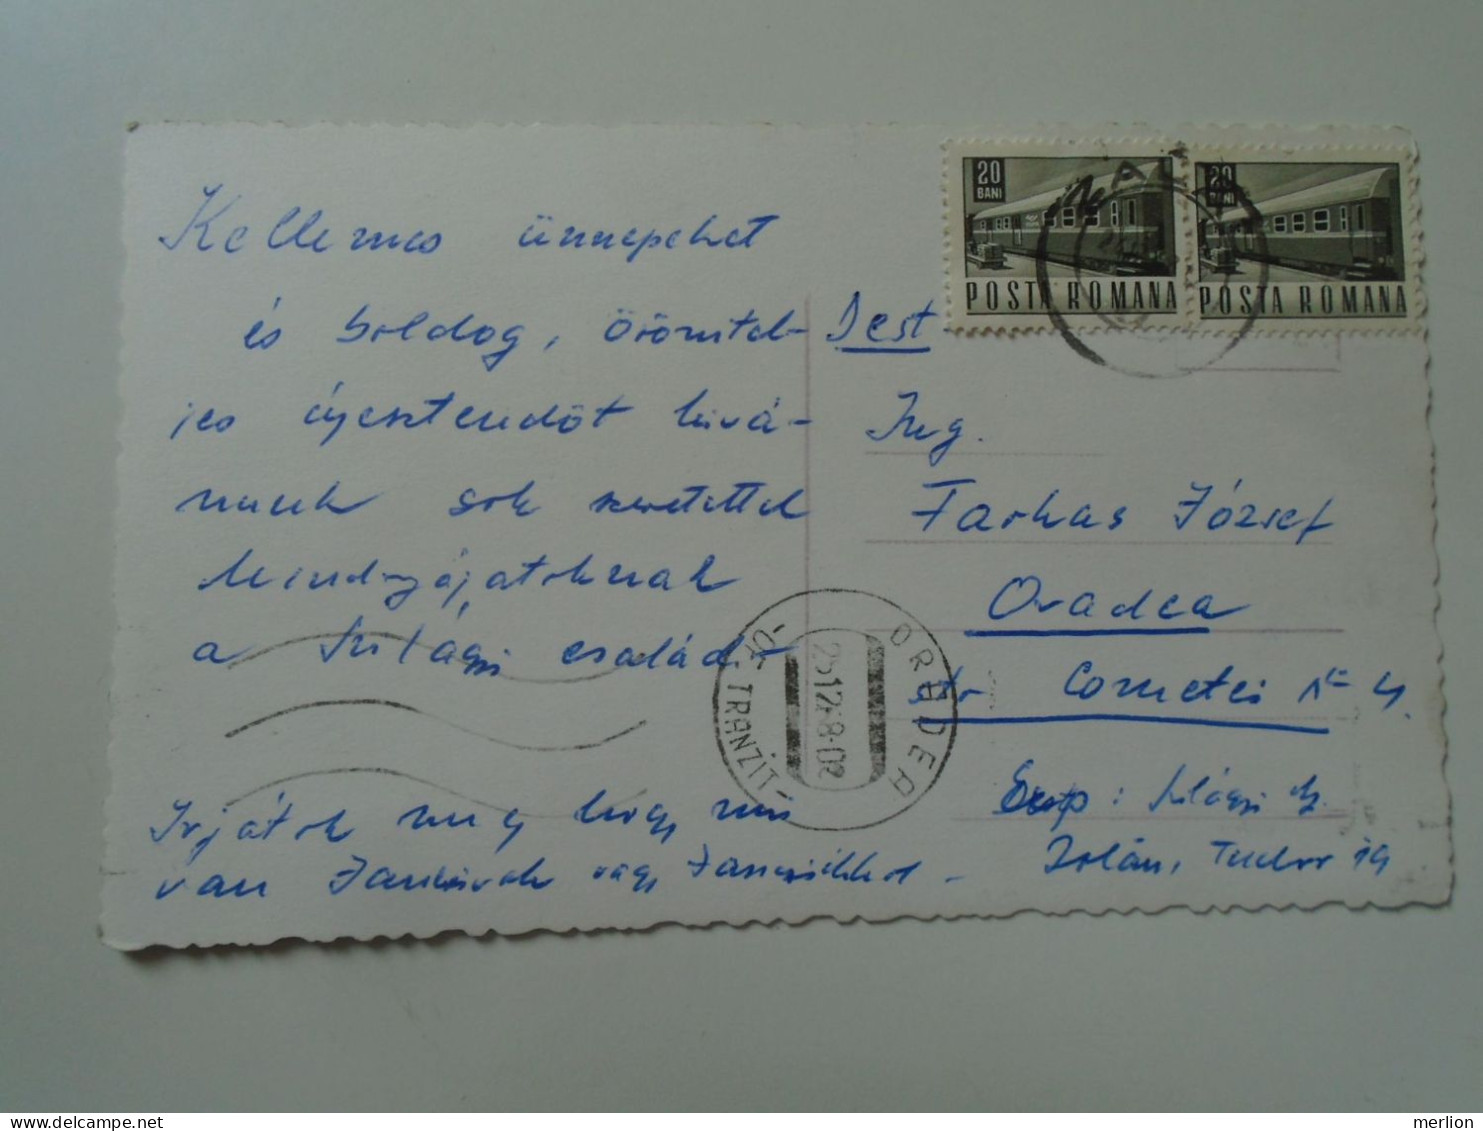 20 BANI
POSTA ROMANA
20 BANI
POSTA ROMANA
Kellemes ünnepeket
és boldog, örömtel-
jes újesztendőt kivá-
nunk sok szeretettel
Mindnyájatoknak
a Szilágyi család-
Irjátok meg hogy mi
van Jancsivak vagy Jancsikkal -
Dest
Ing.
Farkas József
Oradea
str Cornetei n= 4.
Exp: Szilágyi
Zolán, Tudor 19
ORADEA
TRANZIT
25 12 - 8 02
merlion